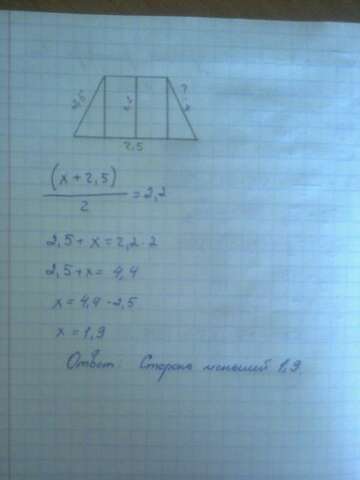 2,5
2,5
(x+2,5)
2
=2,2
2,5+x=2,2·2
2,5+x=4,4
x=4,4-2,5
x=1,9
Ответ Сторона меньшей 1,9.